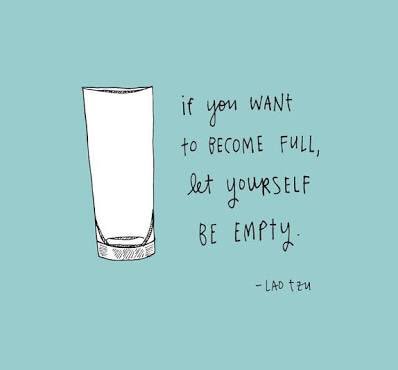 if you WANt
to BECOME FULL,
let YOURSELF
BE EMPty.
- LAO tzu